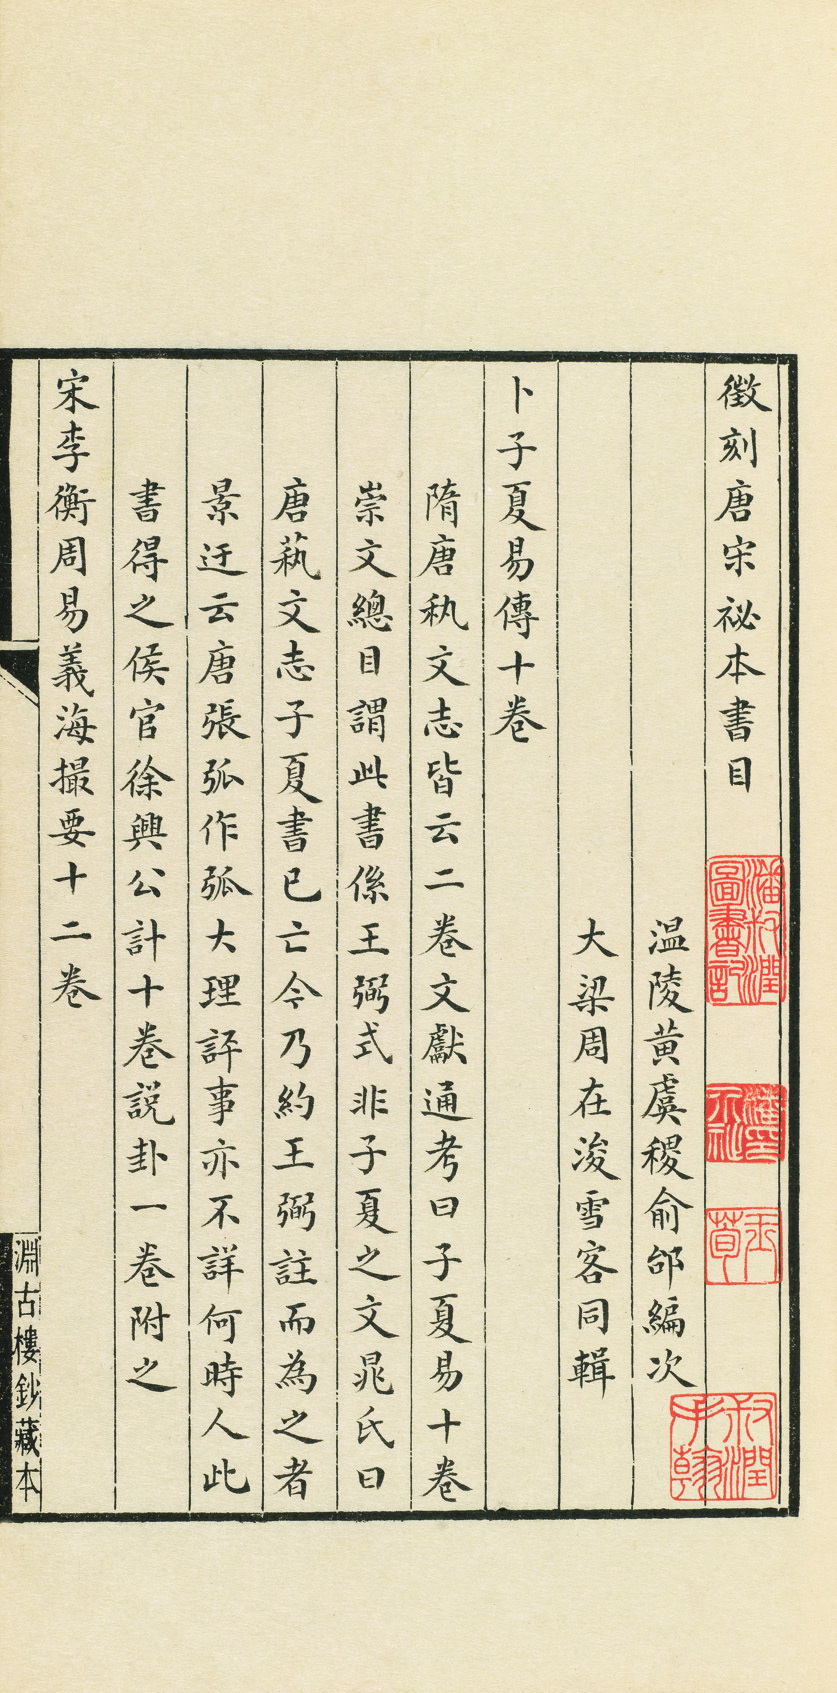 徵刻唐宋祕本書目
温陵黄虞稷俞邰編次
大梁周在浚雪客同輯
卜子夏易傳十卷
隋唐秇文志皆云二卷文獻通考曰子夏易十卷
崇文總目謂此書係王弼式非子夏之文晁氏曰
唐蓺文志子夏書已亡今乃約王弼註而為之者
景迂云唐張弧作弧大理評事亦不詳何時人此
書得之侯官徐興公計十卷説卦一卷附之
宋李衡周易義海撮要十二卷
淵古樓鈔藏本
潘叔潤圖書記
叔潤手翰